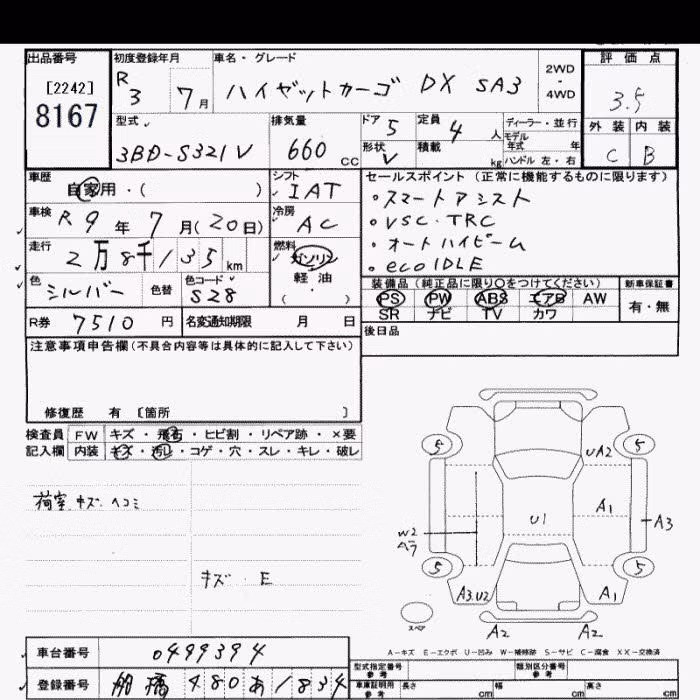 出品番号
[2242]
8167
初度登録年月
R 3 7月
車名・グレード
ハイゼットカーゴ DX SA3
2WD
・
4WD
評価点
3.5
外装 内装
C B
型式
3BD-S321V
排気量
660 CC
ドア 5
形状 V
定員 4人
積載 kg
ディーラー・並行
モデル年式 年
ハンドル 左・右
車歴
自家用・( )
シフト
IAT
車検
R 9年7月(20日)
冷房
AC
走行
2万8千135km
燃料
ガソリン
軽油
( )
色
シルバー
色替
色コード
S28
R券 7510円
名変通知期限 月 日
セールスポイント(正常に機能するものに限ります)
・スマートアシスト
・VSC・TRC
・オートハイビーム
・ecoIDLE
装備品(純正品に限り○をつけてください)
PS PW ABS エアB AW
SR ナビ TV カワ
新車保証書
有・無
後日品
注意事項申告欄(不具合内容等は具体的に記入して下さい)
修復歴 有 〔箇所 〕
検査員
記入欄
FW キズ・飛石・ヒビ割・リペア跡・×要
内装 キズ・汚レ・コゲ・穴・スレ・キレ・破レ
荷室 キズ ヘコミ
キズ E
5 5
UA2
A1
U1
A3
W2
5 5
A3.U2 A1
スペア
A2 A2
A-キズ E-エクボ U-凹み W-補修跡 S-サビ C-腐食 XX-交換済
車台番号 0499394
登録番号 船橋 480 あ 1834
型式指定番号
参考
類別区分番号
参考
車庫証明用
参考
長さ cm 幅 cm 高さ cm